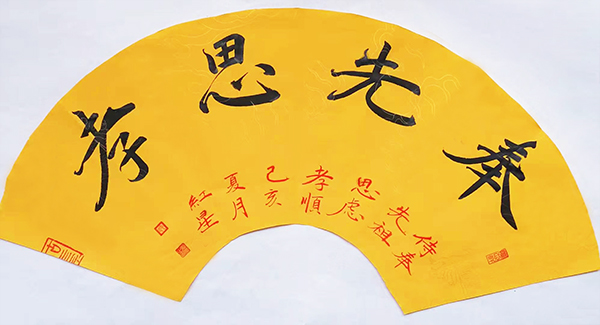 奉先思孝
侍奉
先祖
思虑
孝順
己亥
夏月
紅星